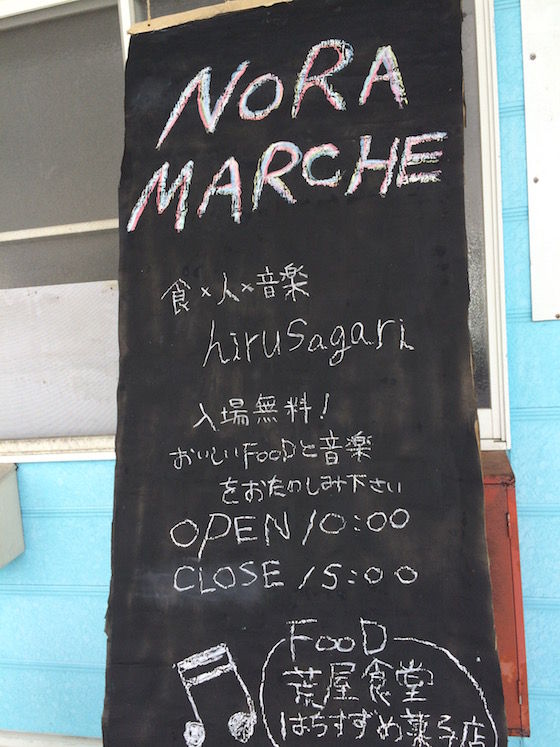 NORA
MARCHE
食×人×音楽
hirusagari
入場無料!
おいしいFooDと音楽
をおたのしみ下さい
OPEN 10:00
CLOSE 15:00
FooD
荒屋食堂
はちすずめ菓子店